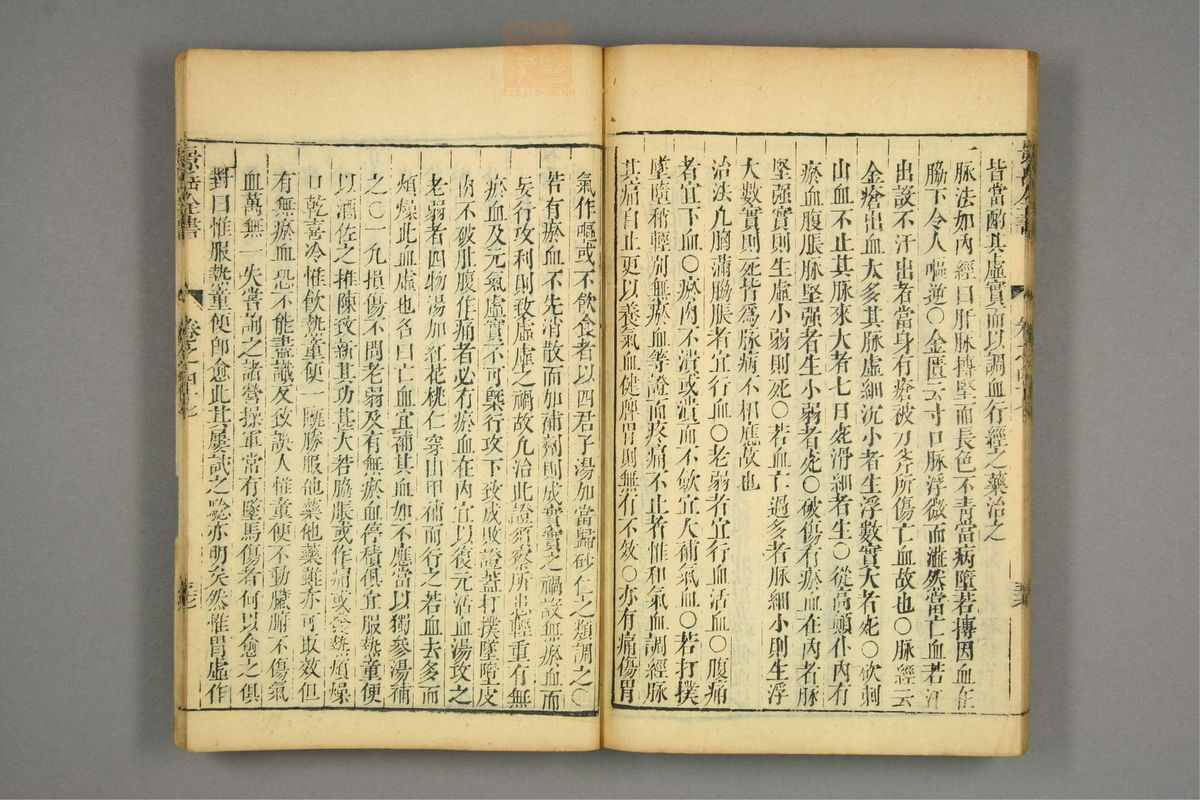 皆當酌其虛實而以調血行經之藥治之
一脉法如內經曰肝脉搏堅而長色不青當病墜若搏因血在
脇下令人嘔逆〇金匱云寸口脉浮微而濇然當亡血若汗
出設不汗出者當身有瘡被刀斧所傷亡血故也〇脉經云
金瘡出血太多其脉虛細沉小者生浮數實大者死〇砍刺
出血不止其脉來大者七日死滑細者生〇從高顛仆內有
瘀血腹脹脉堅强者生小弱者死〇破傷有瘀血在內者脉
堅强實則生虛小弱則死〇若血亡過多者脉細小則生浮
大數實則死皆爲脉病不相應故也
治法凡胸滿脇脹者宜行血〇老弱者宜行血活血〇腹痛
者宜下血〇瘀肉不潰或潰而不歛宜大補氣血〇若打撲
墜墮稍輕別無瘀血等證而疼痛不止者惟和氣血調經脉
其痛自止更以養氣血健脾胃則無有不效〇亦有痛傷胃
氣作嘔或不飲食者以四君子湯加當歸砂仁之類調之〇
若有瘀血不先消散而加補劑則成實實之禍設無瘀血而
妄行攻利則致虛虛之禍故凡治此證須察所患輕重有無
瘀血及元氣虛實不可槩行攻下致成敗證葢打撲墜墮皮
肉不破肚腹作痛者必有瘀血在內宜以復元活血湯攻之
老弱者四物湯加紅花桃仁穿山甲補而行之若血去多而
煩燥此血虛也名曰亡血宜補其血如不應當以獨參湯補
之〇一凡損傷不問老弱及有無瘀血停積俱宜服熱童便
以酒佐之推陳致新其功甚大若脇脹或作痛或發熱煩燥
口乾喜冷惟飲熱童便一甌勝服他藥他藥雖亦可取效但
有無瘀血恐不能盡識反致誤人惟童便不動臟腑不傷氣
血萬無一失嘗詢之諸營操軍常有墜馬傷者何以愈之俱
對曰惟服熱童便卽愈此其屢試之驗亦明矣然惟胃虛作
景岳全書
卷之四十七